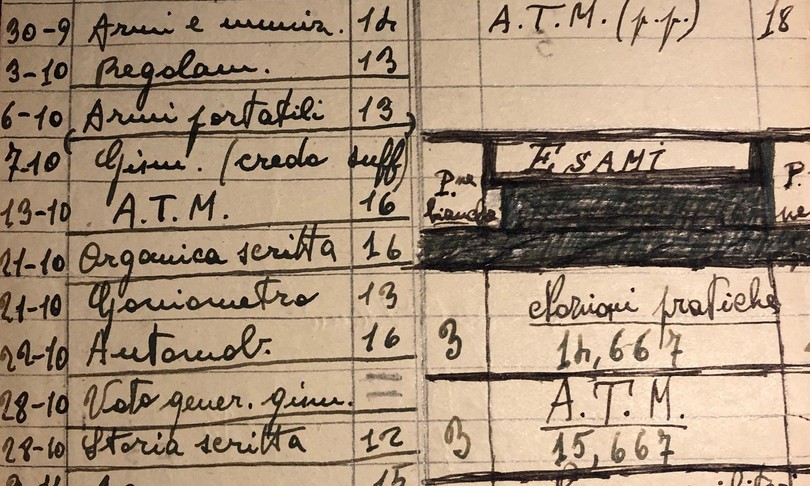 30-9 Armi e muniz. 14
3-10 Regolam. 13
6-10 Armi portatili 13
7-10 Ginn. (credo suff)
13-10 A.T.M. 16
21-10 Organica scritta 16
21-10 Goniometro 13
22-10 Automob. 16
28-10 Voto gener. ginn. =
28-10 Storia scritta 12
15
A.T.M. (p.p.) 18
ESAMI
P.ne
bianche
Nozioni pratiche
3 14,667
A.T.M.
3 15,667